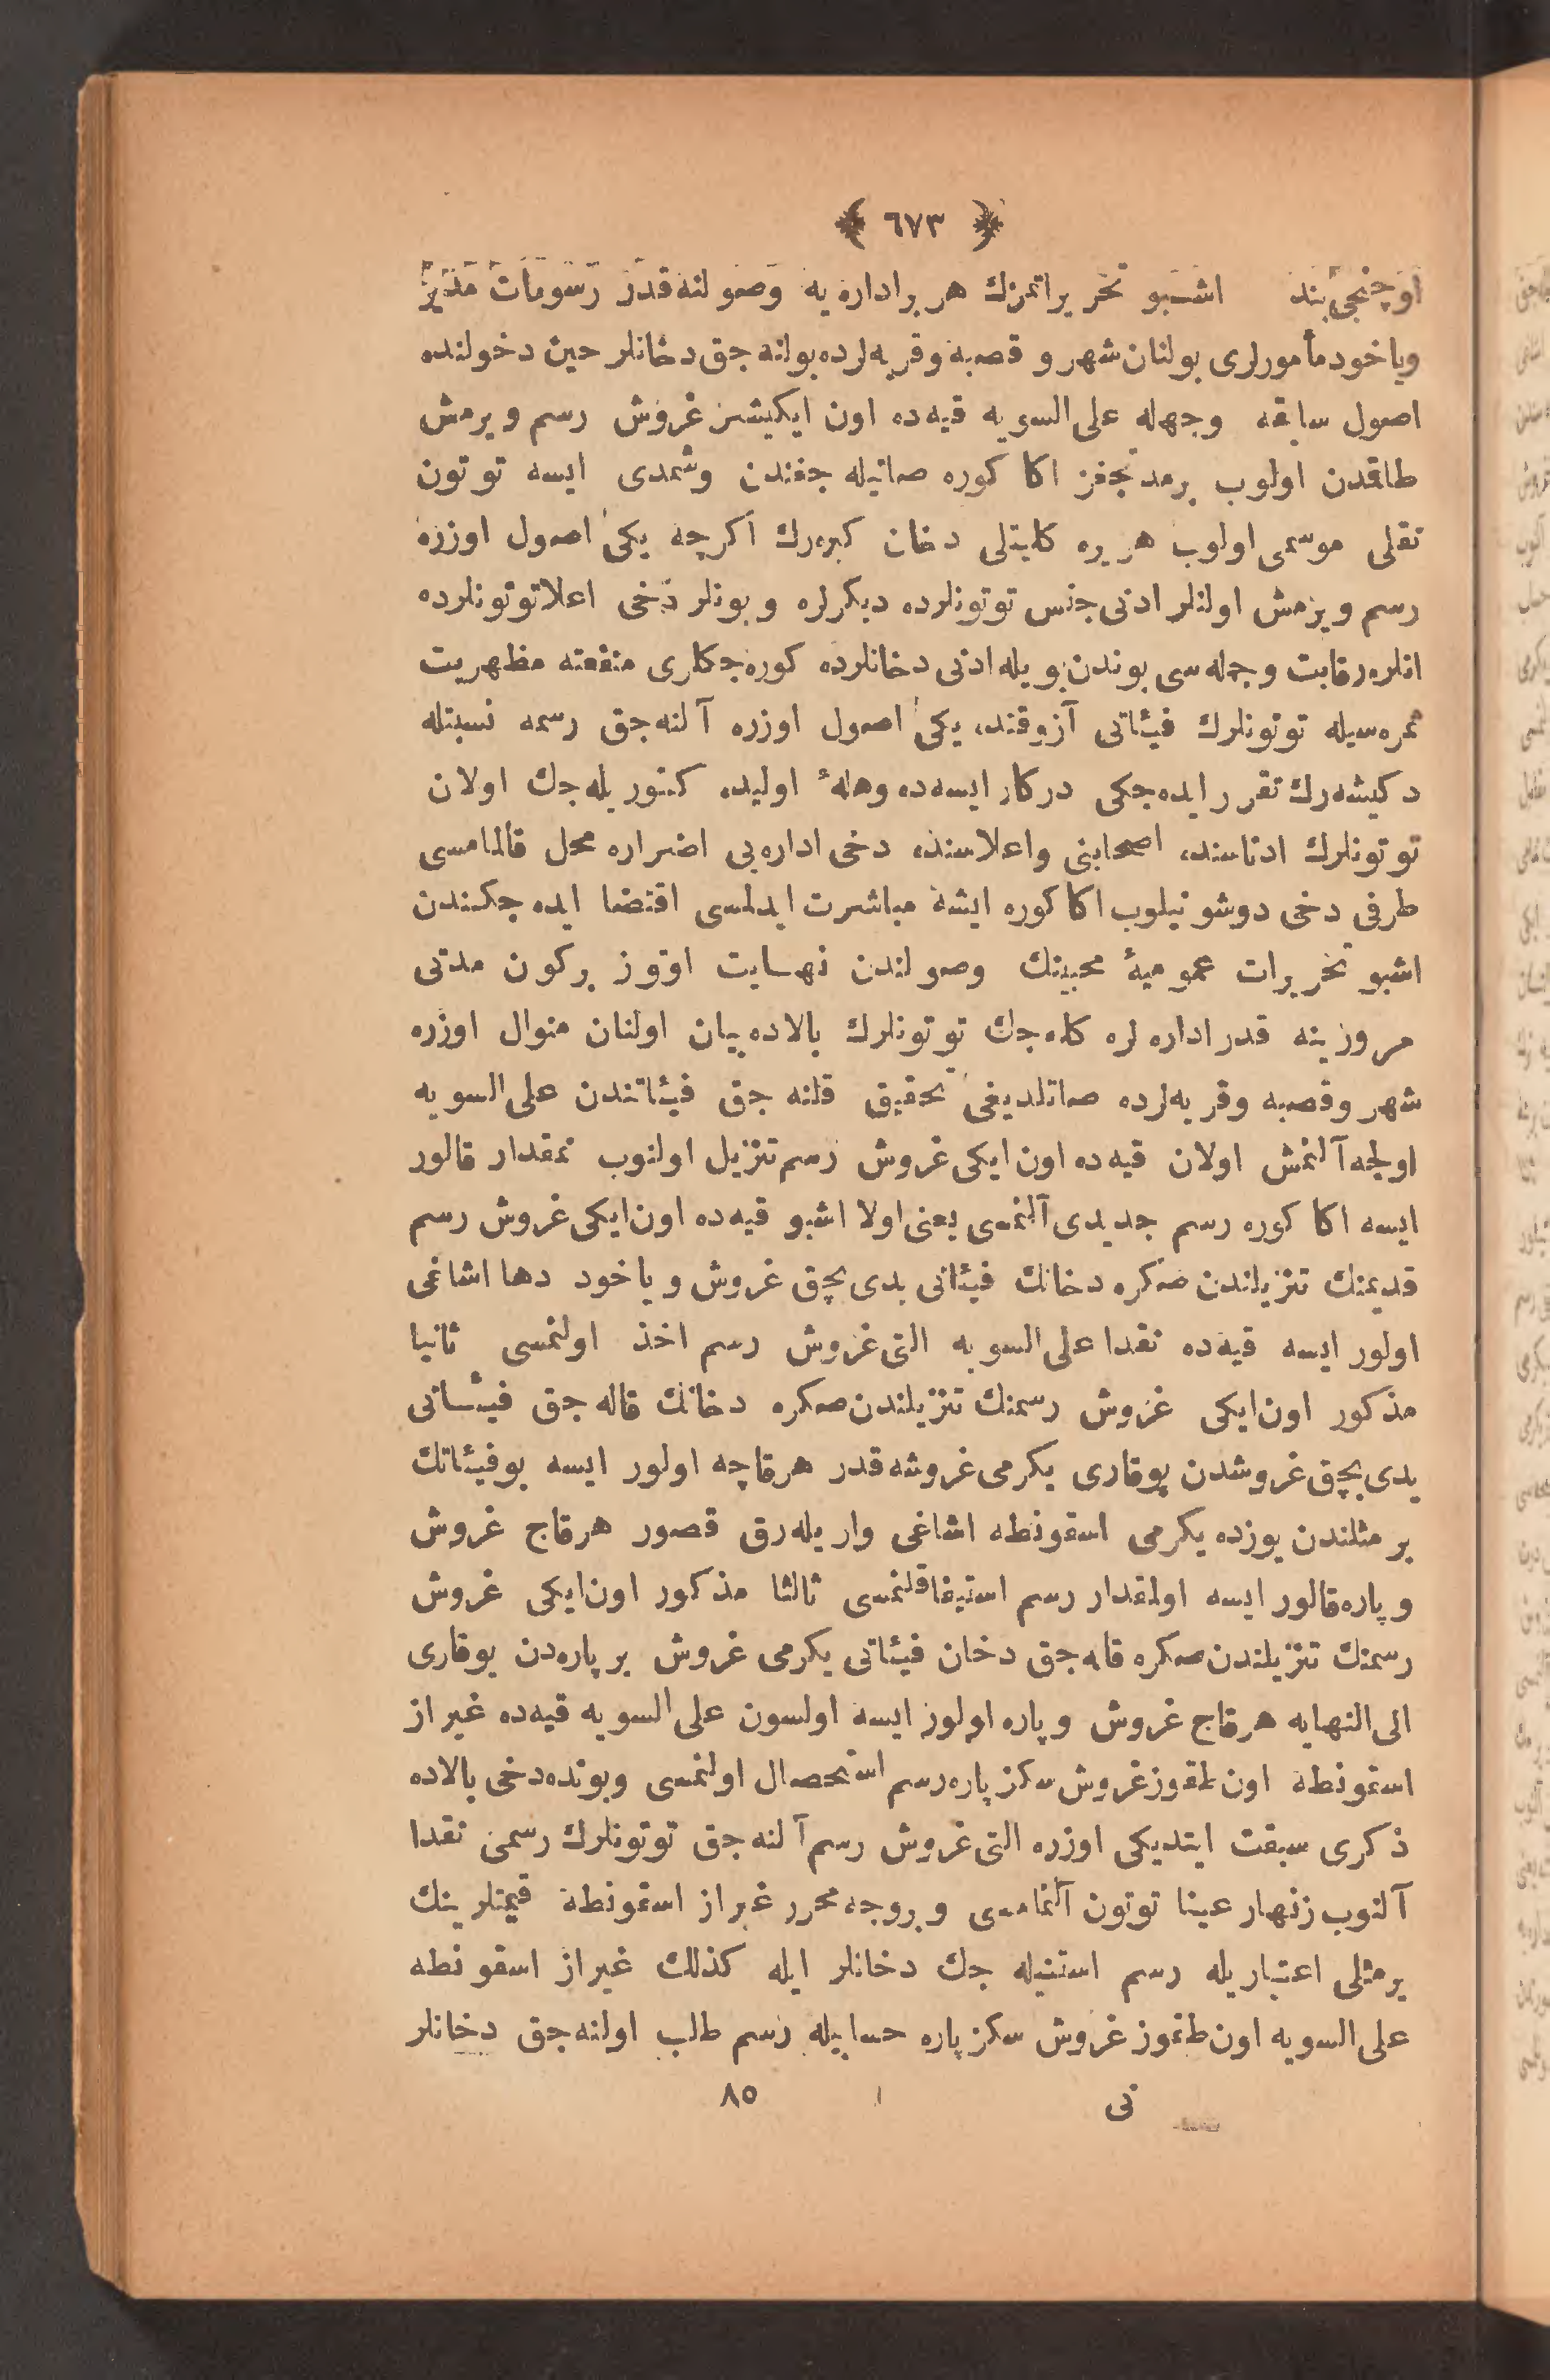 ﴿ ٦٧٣ ﴾
اوچنجی بند اشبو تحریراتمزك هر براداره یه وصولنه قدر رسومات مدیر
ویاخود مأمورلری بولنان شهر و قصبه و قریه لرده بولنه جق دخانلر حین دخولنده
اصول سابقه وجهله علی السویه قیه ده اون ایکیشر غروش رسم ویرمش
طاقدن اولوب برمدتجغز اكا كوره صاتیله جغندن وشمدی ایسه توتون
نقلی موسمی اولوب هر یره کلیتلی دخان کیره رك اکرچه یکی اصول اوزره
رسم ویرمش اولنلر ادنی جنس توتونلرده دیکرلره و بونلر دخی اعلا توتونلرده
انلره رقابت و جمله سی بوندن بویله ادنی دخانلرده کوره جکلری منفعته مظهریت
ثمره سیله توتونلرك فیئاتی آز وقتده یکی اصول اوزره آلنه جق رسمه نسبتله
دکیشه رك تقرر ایده جکی درکار ایسه ده وهلهٔ اولیده کتوریله جك اولان
توتونلرك ادناسنده اصحابنی واعلاسنده دخی اداره یی اضراره محل قالمامسی
طرفی دخی دوشونیلوب اكا كوره ایشه مباشرت ایدلمسی اقتضا ایده جکندن
اشبو تحریرات عمومیهٔ محبینك وصولندن نهایت اوتوز برکون مدتی
مرورینه قدر اداره لره کله جك توتونلرك بالاده بیان اولنان منوال اوزره
شهر وقصبه وقریه لرده صاتلدیغی تحقیق قلنه جق فیئاتندن علی السویه
اولجه آلنمش اولان قیه ده اون ایکی غروش رسم تنزیل اولنوب نمقدار قالور
ایسه اكا كوره رسم جدیدی آلنمسی یعنی اولا اشبو قیه ده اون ایکی غروش رسم
قدیمنك تنزیلندن صکره دخانك فیئاتی یدی بچق غروش ویاخود دها اشاغی
اولور ایسه قیه ده نقدا علی السویه التی غروش رسم اخذ اولنمسی ثانیا
مذکور اون ایکی غروش رسمنك تنزیلندن صکره دخانك قاله جق فیئاتی
یدی بچق غروشدن یوقاری یکرمی غروشه قدر هر قاچه اولور ایسه بو فیئاتك
بر مثلندن یوزده یکرمی اسقونطه اشاغی واریله رق قصور هر قاچ غروش
و پاره قالور ایسه اولمقدار رسم استیفا قلنمسی ثالثا مذکور اون ایکی غروش
رسمنك تنزیلندن صکره قاله جق دخان فیئاتی یکرمی غروش بر پاره دن یوقاری
الی النهایه هر قاچ غروش و پاره اولور ایسه اولسون علی السویه قیه ده غیر از
اسقونطه اون طقوز غروش سکز پاره رسم استحصال اولنمسی وبونده دخی بالاده
ذکری سبقت ایتدیکی اوزره التی غروش رسم آلنه جق توتونلرك رسمی نقدا
آلنوب زنهار عینا توتون آلنمامسی و بروجه محرر غیر از اسقونطه قیمتلرینك
بر مثلی اعتباریله رسم استنیله جك دخانلر ایله کذلك غیر از اسقونطه
علی السویه اون طقوز غروش سکز پاره حسابیله رسم طلب اولنه جق دخانلر
نی ١ ٨٥